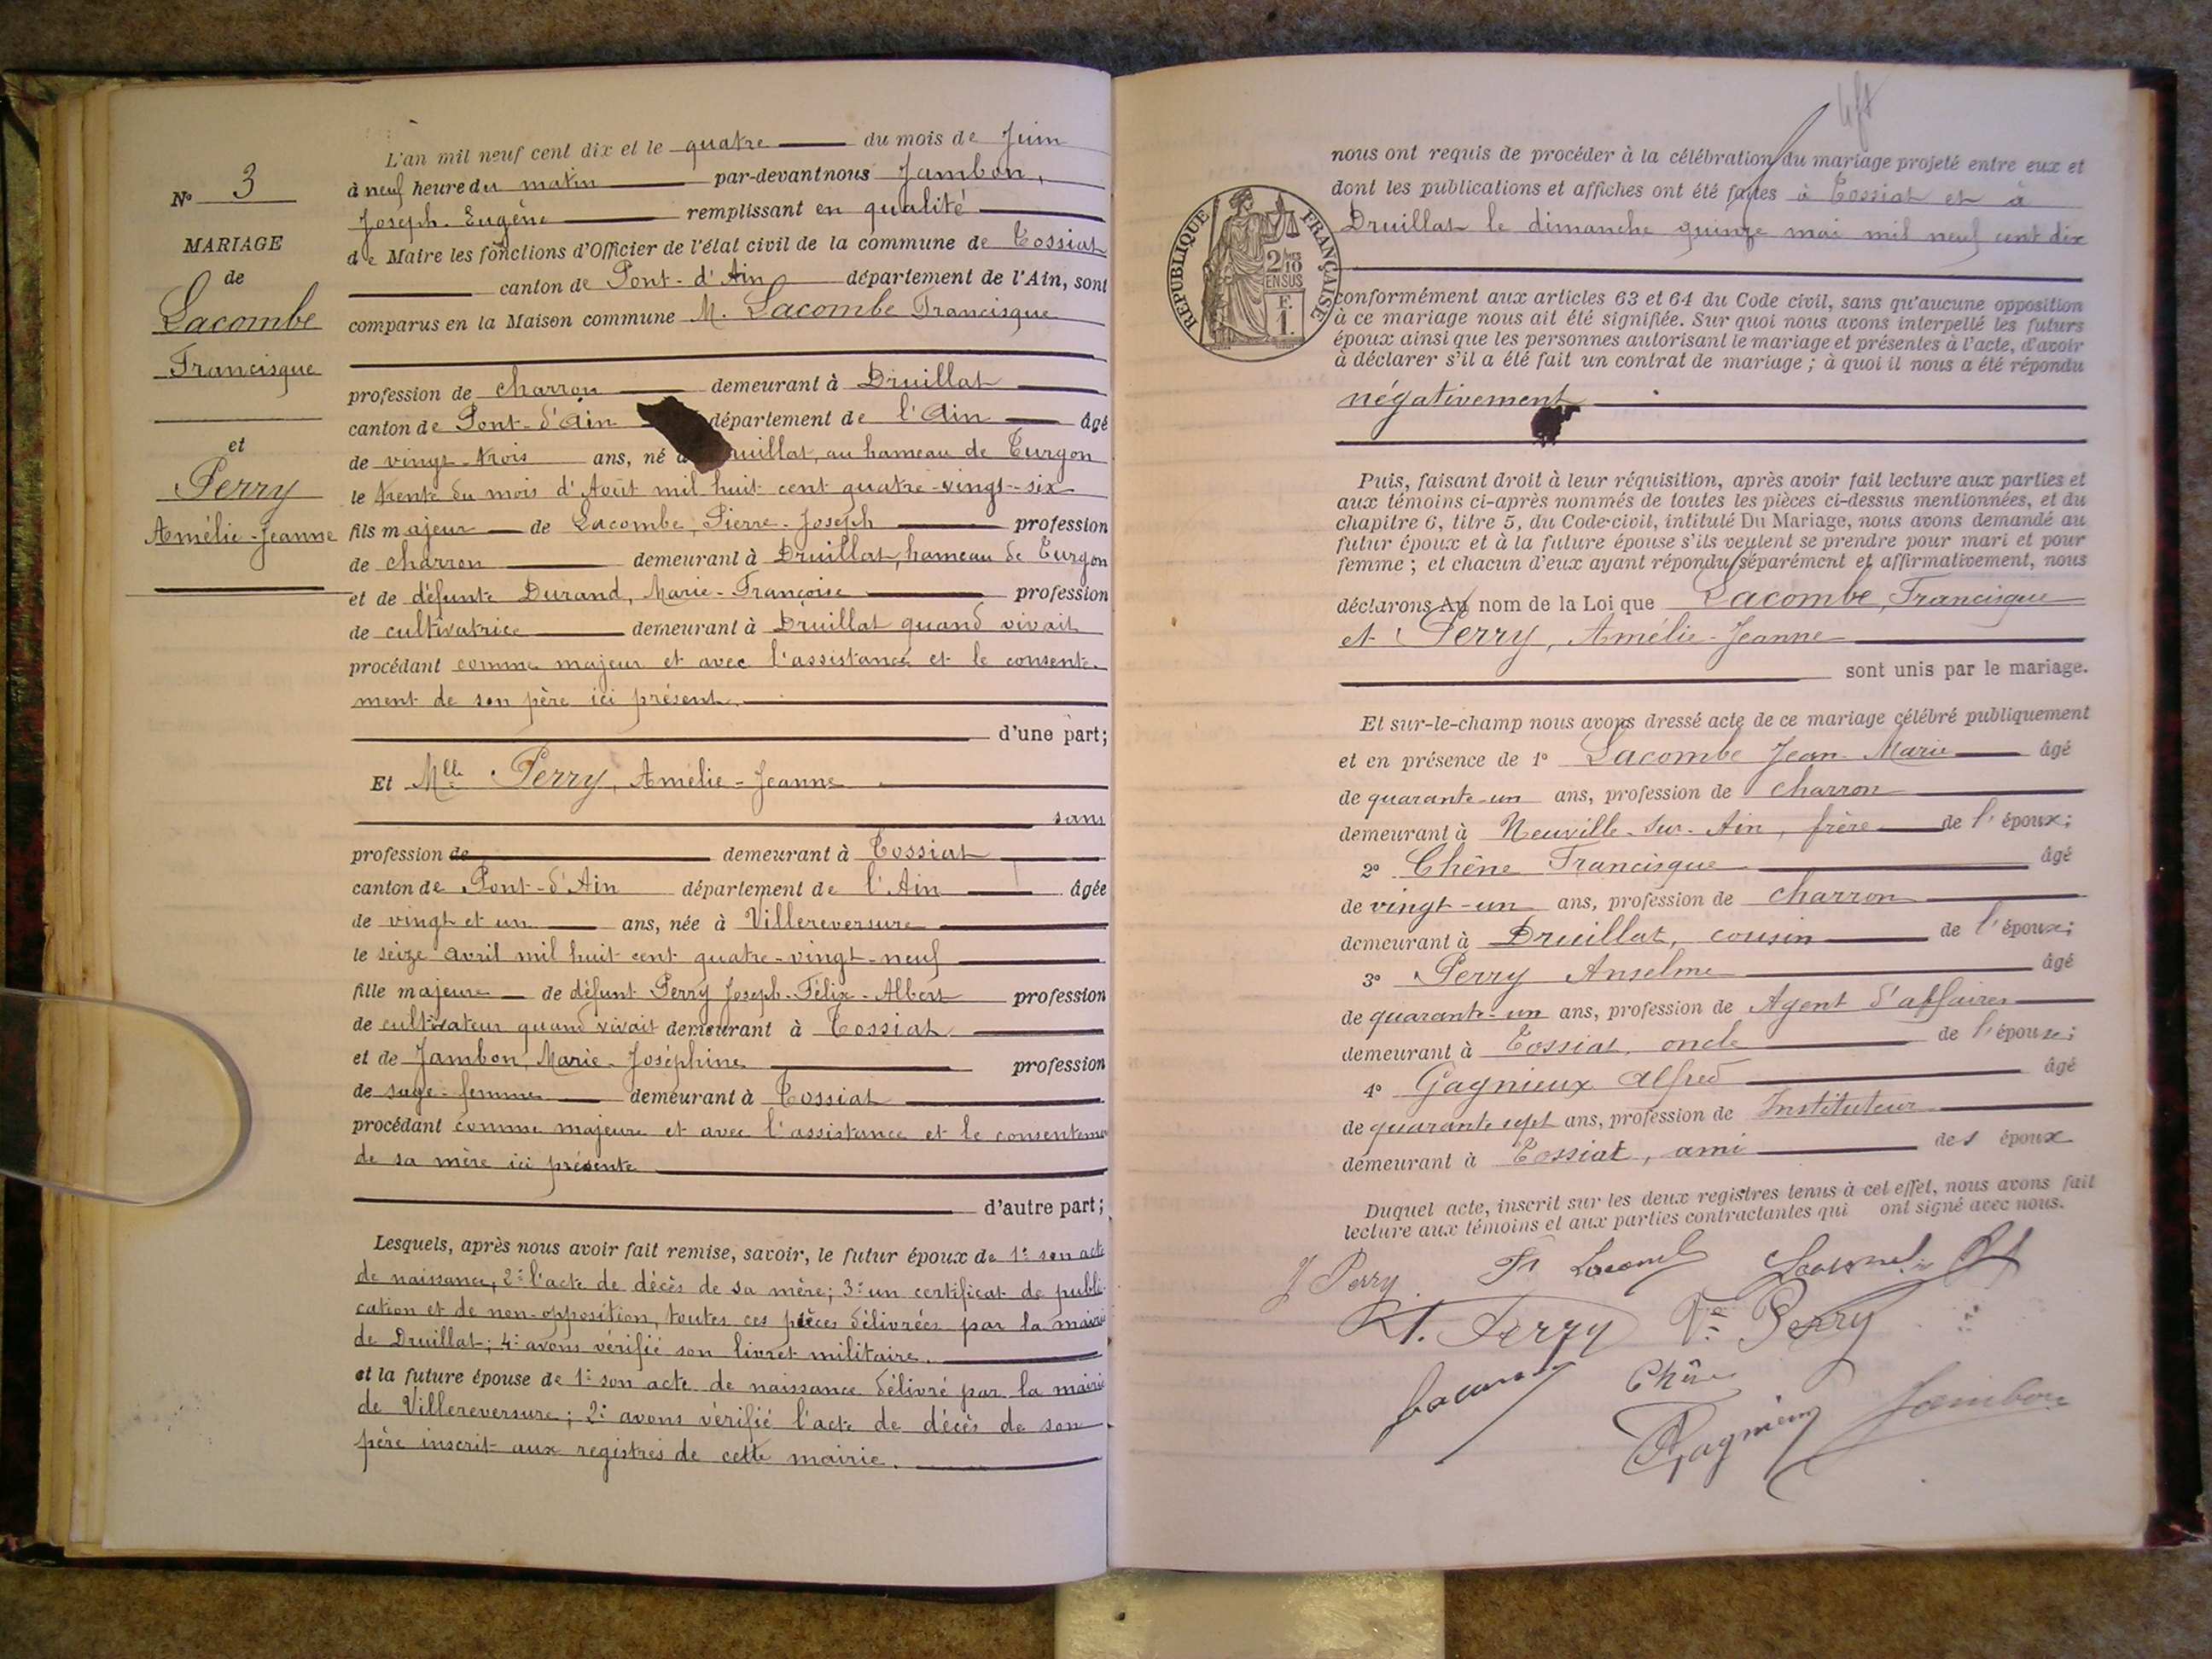 L'an mil neuf cent dix et le quatre du mois de Juin
à neuf heure du matin par-devant nous Jambon,
Joseph-Eugène remplissant en qualité
de Maire les fonctions d'Officier de l'état civil de la commune de Tossiat
canton de Pont-d'Ain département de l'Ain, sont
comparus en la Maison commune M. Lacombe Francisque
profession de charron demeurant à Druillat
canton de Pont-d'Ain département de l'Ain âgé
de vingt-trois ans, né à Druillat, au hameau de Turgon
le trente du mois d'Août mil huit cent quatre-vingt-six
fils majeur de Lacombe, Pierre-Joseph profession
de charron demeurant à Druillat, hameau de Turgon
et de défunte Durand, Marie-Françoise profession
de cultivatrice demeurant à Druillat quand vivait
procédant comme majeur et avec l'assistance et le consente-
ment de son père ici présent.
d'une part;
Et Mlle Perry, Amélie-Jeanne
sans
profession de demeurant à Tossiat
canton de Pont-d'Ain département de l'Ain âgée
de vingt et un ans, née à Villereversure
le seize avril mil huit cent quatre-vingt-neuf
fille majeure de défunt Perry Joseph-Félix-Albert profession
de cultivateur quand vivait demeurant à Tossiat
et de Jambon, Marie-Joséphine profession
de sage-femme demeurant à Tossiat
procédant comme majeure et avec l'assistance et le consenteme
de sa mère ici présente
d'autre part;
Lesquels, après nous avoir fait remise, savoir, le futur époux de 1º son acte
de naissance; 2º l'acte de décès de sa mère; 3º un certificat de publi-
cation et de non-opposition, toutes ces pièces délivrées par la mairie
de Druillat; 4º avons vérifié son livret militaire.
et la future épouse de 1º son acte de naissance délivré par la mairie
de Villereversure; 2º avons vérifié l'acte de décès de son
père inscrit aux registres de cette mairie.
Nº 3
MARIAGE
de
Lacombe
Francisque
et
Perry
Amélie-Jeanne
nous ont requis de procéder à la célébration du mariage projeté entre eux et
dont les publications et affiches ont été faites à Tossiat et à
Druillat le dimanche quinze mai mil neuf cent dix
RÉPUBLIQUE FRANÇAISE
2/10
EN SUS
F.
1.
conformément aux articles 63 et 64 du Code civil, sans qu'aucune opposition
à ce mariage nous ait été signifiée. Sur quoi nous avons interpellé les futurs
époux ainsi que les personnes autorisant le mariage et présentes à l'acte, d'avoir
à déclarer s'il a été fait un contrat de mariage; à quoi il nous a été répondu
négativement
Puis, faisant droit à leur réquisition, après avoir fait lecture aux parties et
aux témoins ci-après nommés de toutes les pièces ci-dessus mentionnées, et du
chapitre 6, titre 5, du Code civil, intitulé Du Mariage, nous avons demandé au
futur époux et à la future épouse s'ils veulent se prendre pour mari et pour
femme; et chacun d'eux ayant répondu séparément et affirmativement, nous
déclarons Au nom de la Loi que Lacombe, Francisque
et Perry, Amélie-Jeanne
sont unis par le mariage.
Et sur-le-champ nous avons dressé acte de ce mariage célébré publiquement
et en présence de 1º Lacombe Jean-Marie âgé
de quarante-un ans, profession de charron
demeurant à Neuville-sur-Ain, frère de l'époux;
2º Chêne Francisque âgé
de vingt-un ans, profession de charron
demeurant à Druillat, cousin de l'époux;
3º Perry Anselme âgé
de quarante-un ans, profession de Agent d'affaires
demeurant à Tossiat, oncle de l'épouse;
4º Gagnieux Alfred âgé
de quarante sept ans, profession de Instituteur
demeurant à Tossiat, ami des époux
Duquel acte, inscrit sur les deux registres tenus à cet effet, nous avons fait
lecture aux témoins et aux parties contractantes qui ont signé avec nous.
J Perry Fs Lacombe
A. Perry Vve Perry
Chêne
Gagnieux Jambon